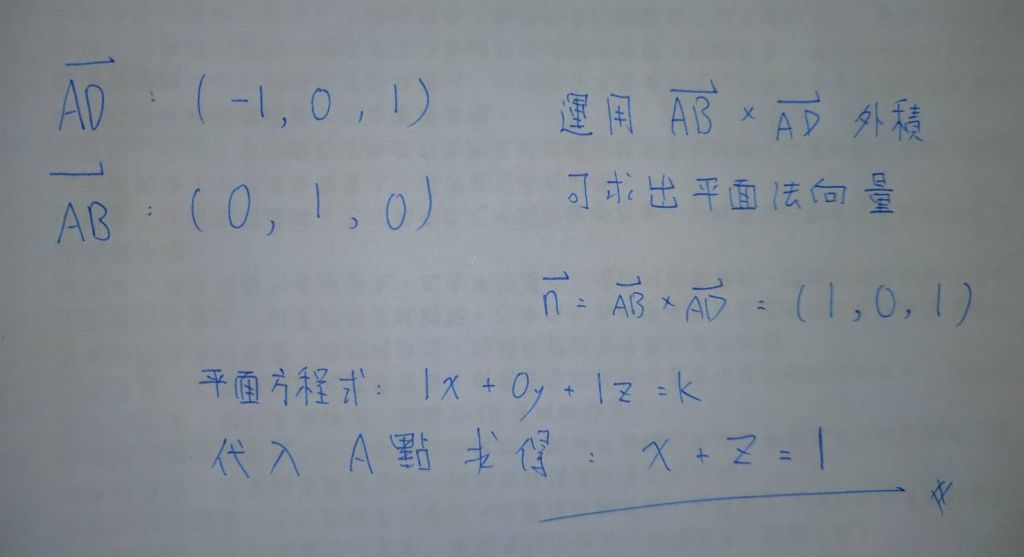 AD : (-1, 0, 1)
AB : (0, 1, 0)
運用 AB × AD 外積
可求出平面法向量
n = AB × AD = (1, 0, 1)
平面方程式: 1x + 0y + 1z = k
代入 A點 求得 : x + z = 1